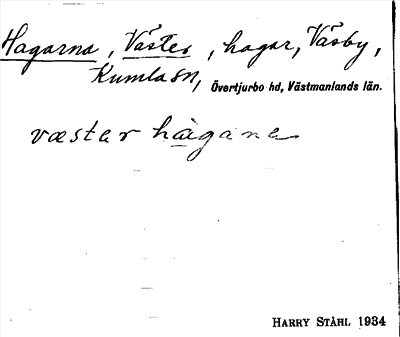 Hagarna, Väster, hagar, Väsby,
Kumla sn, Övertjurbo hd, Västmanlands län.
væster hàgana
HARRY STÅHL 1934